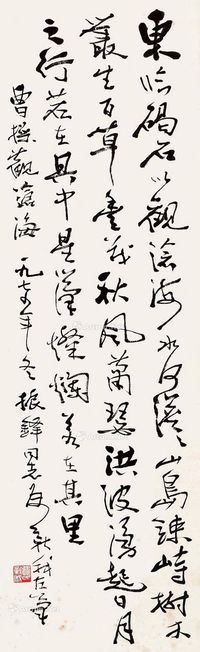 東临碣石以觀滄海水何澹〻山島竦峙樹木
叢生百草豐茂秋風蕭瑟洪波湧起日月
之行若在其中星漢燦爛若在其里
曹操觀滄海一九七五年冬振鐸同志